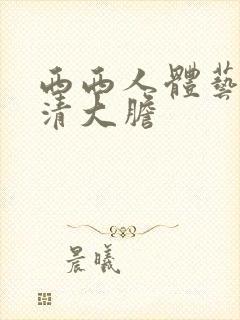 西西人體藝
清大膽
晨曦